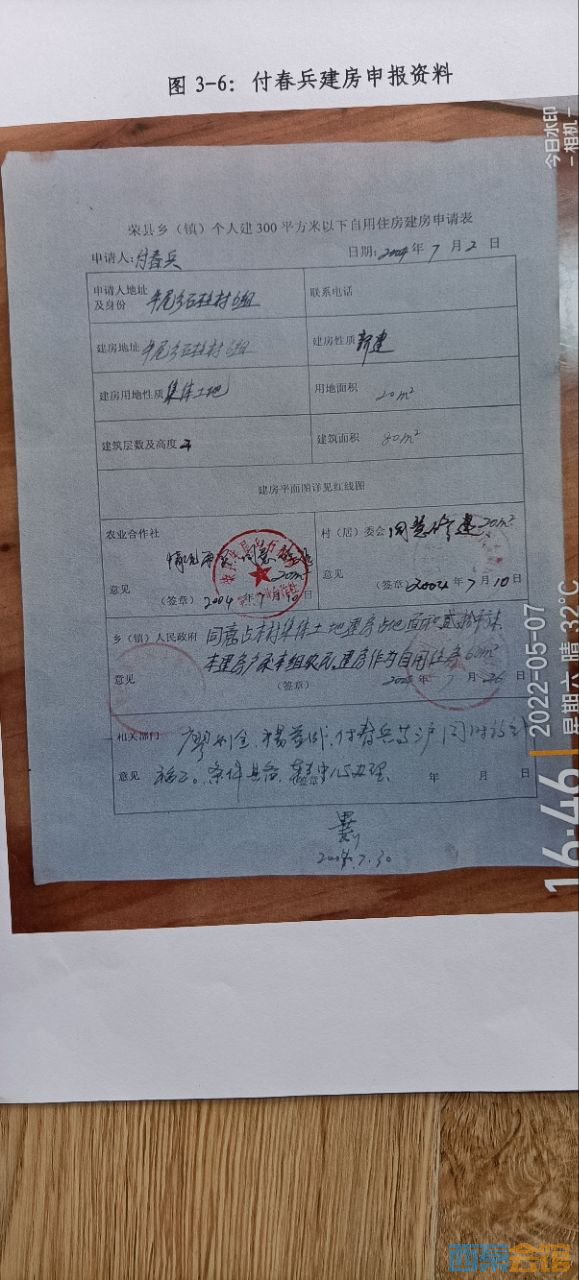 图 3-6：付春兵建房申报资料
今日水印
-相机-
荣县乡（镇）个人建300平方米以下自用住房建房申请表
申请人：付春兵 日期：2004年7月2日
申请人地址及身份 村6组 联系电话
建房地址 村6组 建房性质 新建
建房用地性质 集体土地 用地面积 20m²
建筑层数及高度 建筑面积 80m²
建房平面图详见红线图
农业合作社 村（居）委会 同意修建20m²
情况 同意 20m²
意见 （签章）2004年7月10日 意见 （签章）2004年7月10日
乡（镇）人民政府 同意占本村集体土地建房占地面积贰拾平米
本组农民,建房作为自用住房60m²
意见 （签章） 年7月26日
相关部门 付春兵等 户
意见 条件具备, 办理 签章 年 月 日
2004.7.30
16:46
2022-05-07
星期六 晴 32℃
西秦会馆